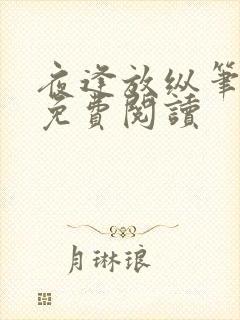 夜逢放纵筆
免費閱讀
月琳琅